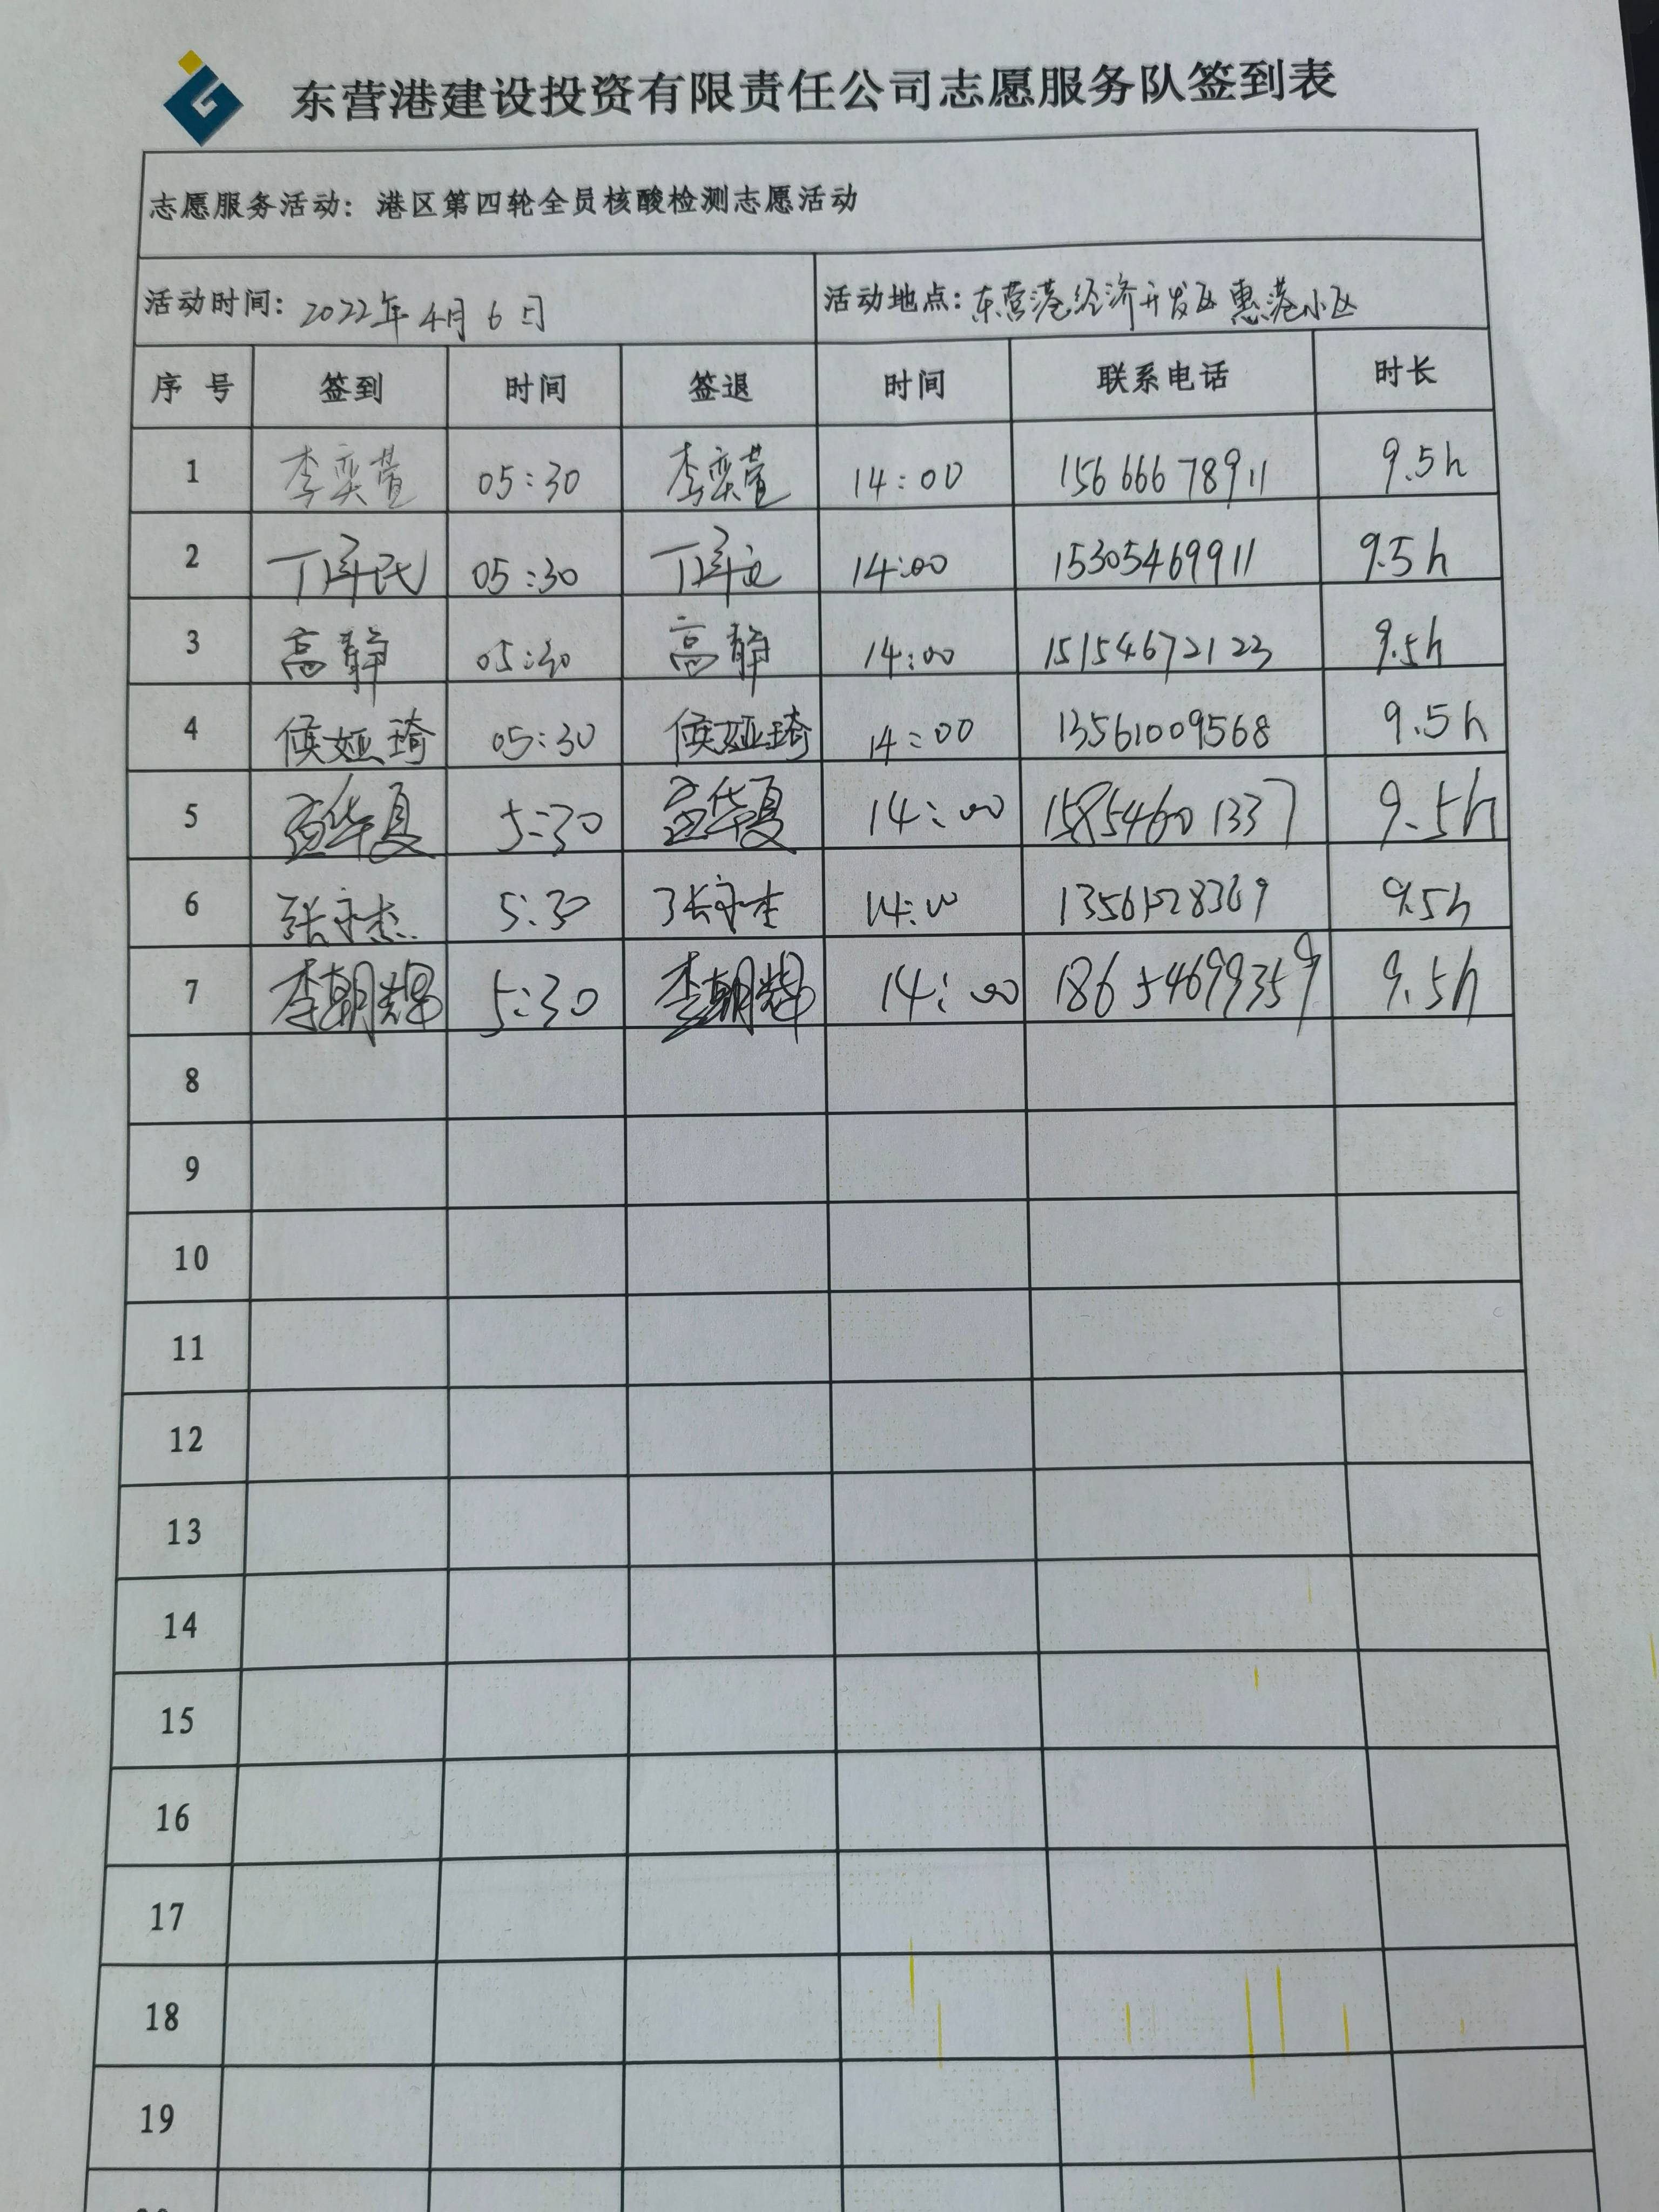 东营港建设投资有限责任公司志愿服务队签到表
志愿服务活动：港区第四轮全员核酸检测志愿活动
活动时间：2022年4月6日 活动地点：东营港经济开发区惠港小区
序号 签到 时间 签退 时间 联系电话 时长
1 李奕萱 05:30 李奕萱 14:00 15666678911 9.5h
2 05:30 14:00 15305469911 9.5h
3 高静 05:30 高静 14:00 15154672123 9.5h
4 侯娅琦 05:30 侯娅琦 14:00 13561009568 9.5h
5 孟华夏 5:30 孟华夏 14:00 15854601337 9.5h
6 张永杰 5:30 张永杰 14:00 13561528369 9.5h
7 李朝辉 5:30 李朝辉 14:00 18654699359 9.5h
8
9
10
11
12
13
14
15
16
17
18
19